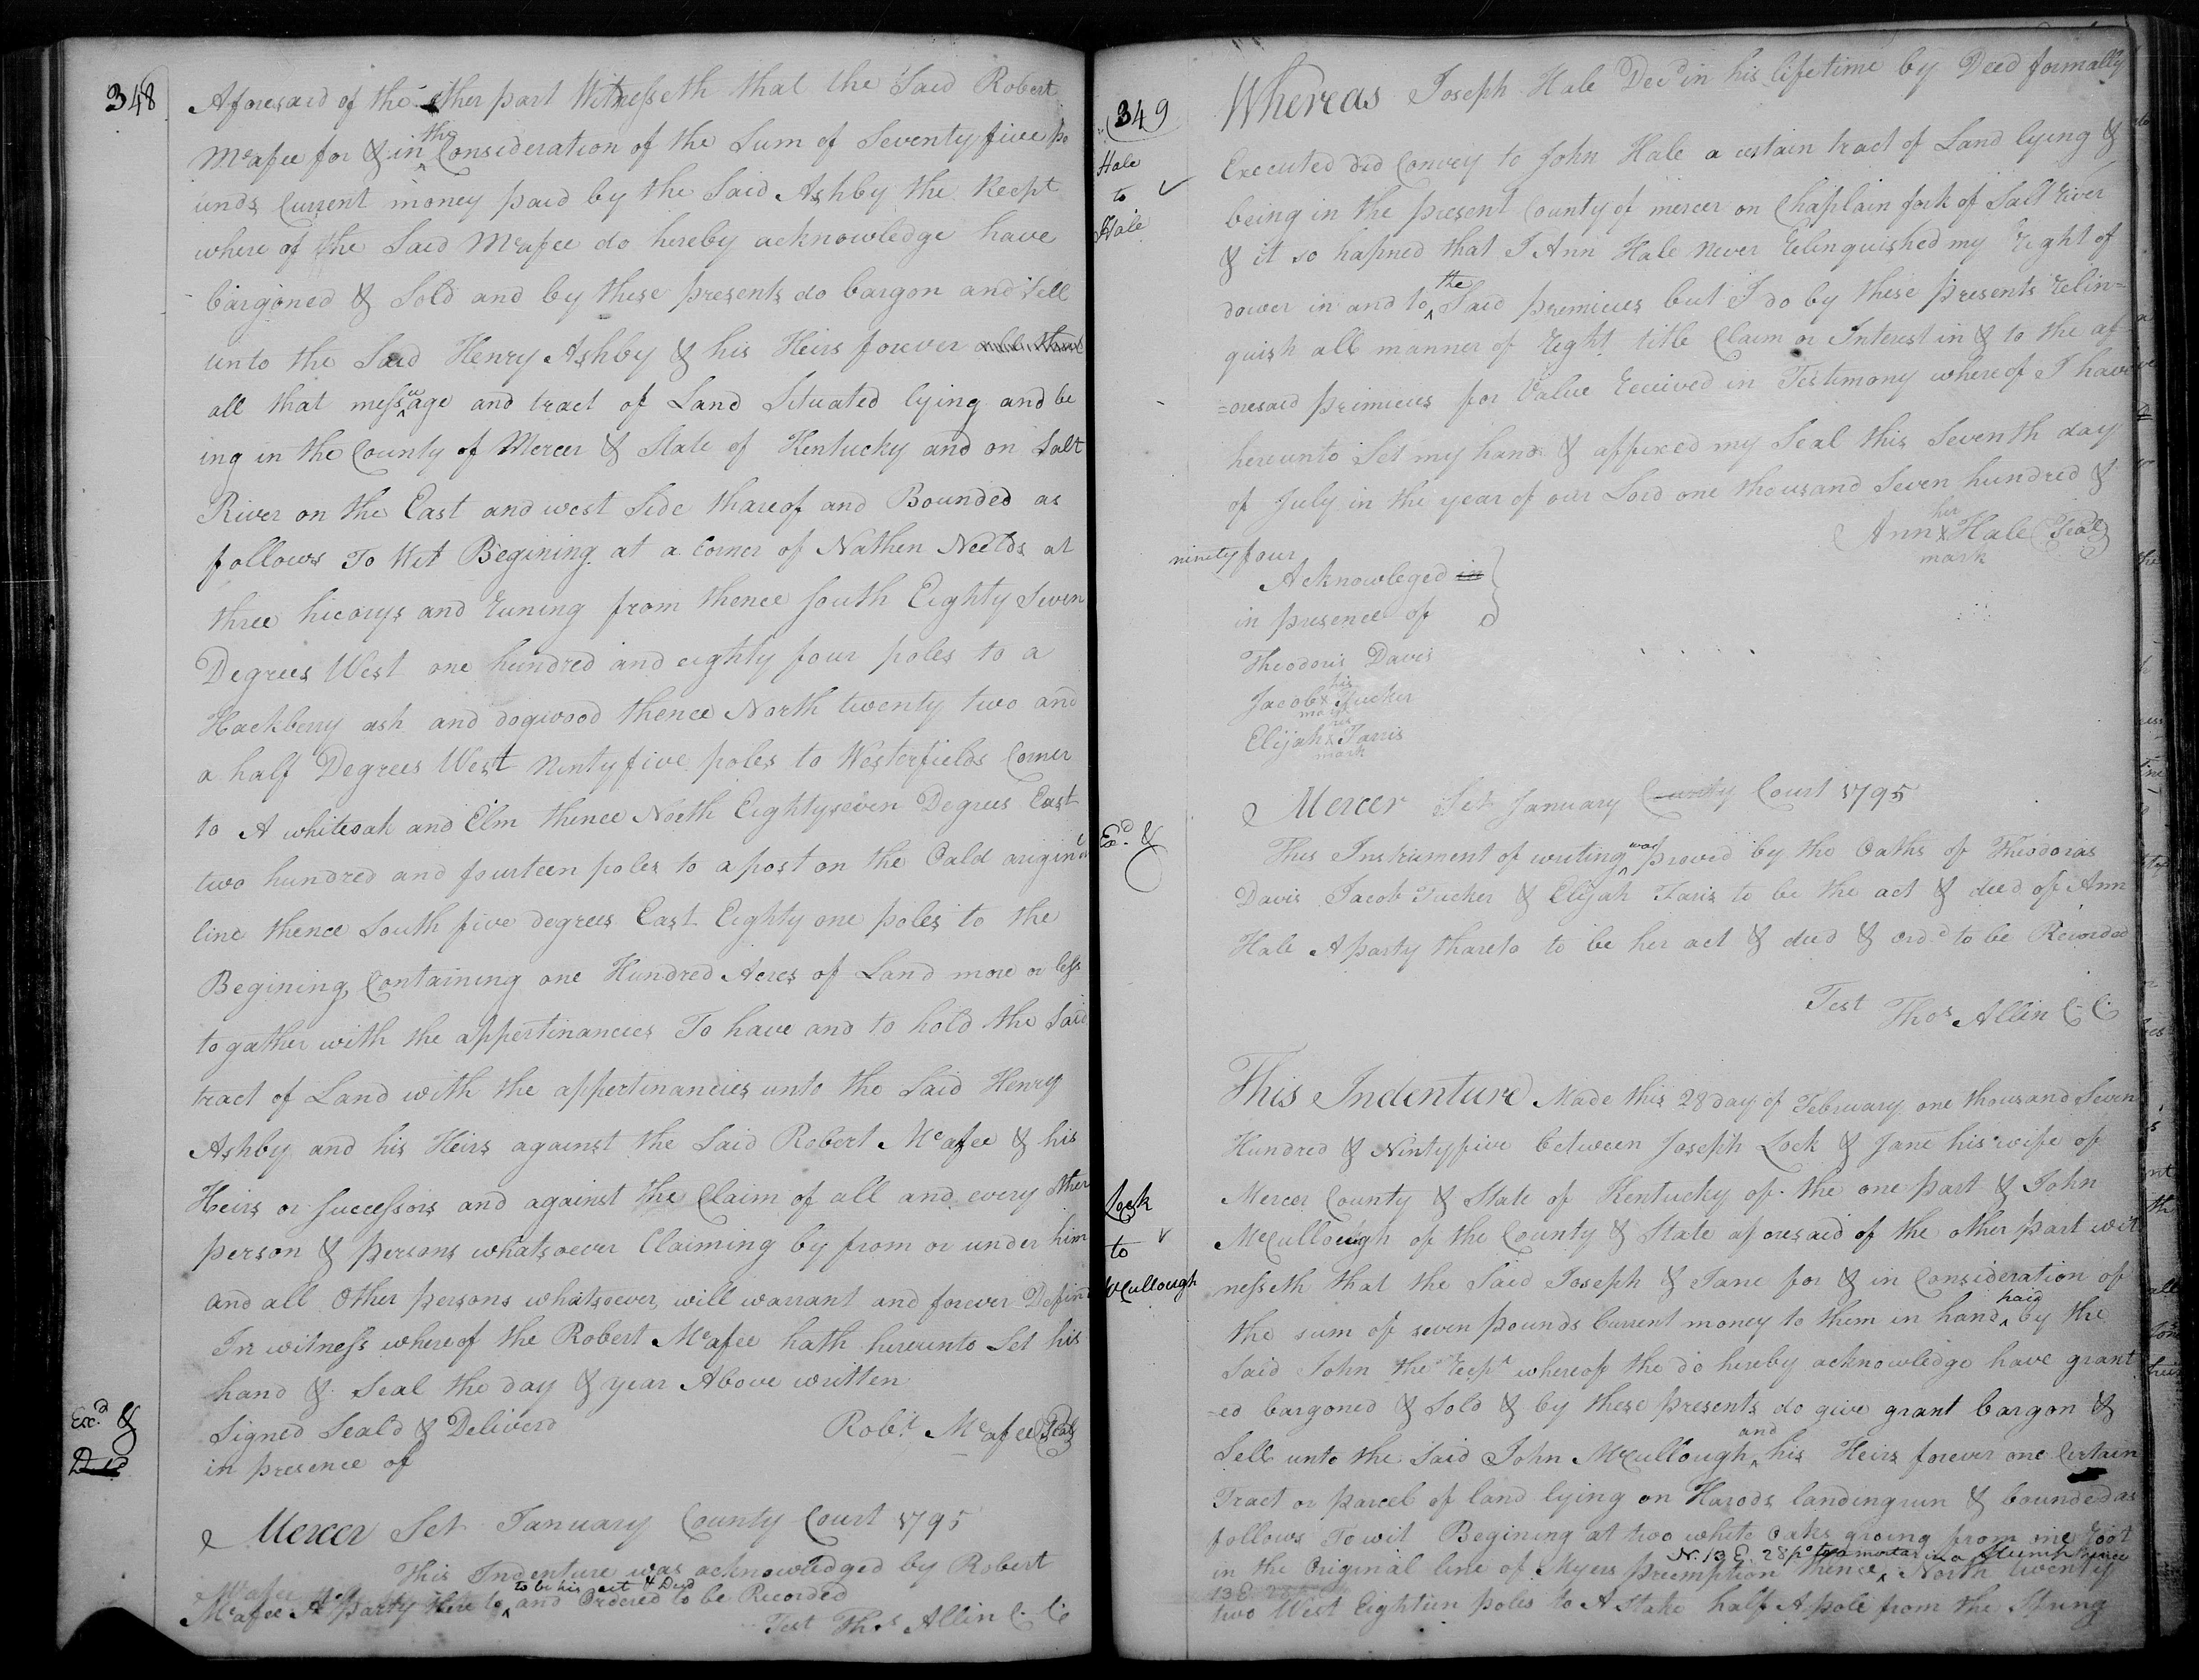 348
Aforesaid of the other part Witnesseth that the Said Robert
Mcafee for & in the Consideration of the Sum of Seventy five po
unds Current money paid by the Said Ashby the Recpt
where of the Said Mcafee do hereby acknowledge have
bargoned & Sold and by these presents do bargon and Sell
unto the Said Henry Ashby & his Heirs forever
all that messuage and tract of Land Situated lying and be
ing in the County of Mercer & State of Kentucky and on Salt
River on the East and west Side thareof and Bounded as
follows To Wit Begining at a Corner of Nathen Neelds at
three hicorys and runing from thence South Eighty Seven
Degrees West one hundred and eighty four poles to a
Hackberry ash and dogwood thence North twenty two and
a half Degrees West Nintyfive poles to Westerfields Corner
to A whiteoak and Elm thence North Eightyseven Degrees East
two hundred and fourteen poles to a post on the Oald origin
line thence South five degrees East Eighty one poles to the
Begining Containing one Hundred Acres of Land more or less
to gather with the appertinancies To have and to hold the Said
tract of Land with the appertinancies unto the Said Henry
Ashby and his Heirs against the Said Robert Mcafee & his
Heirs or Successors and against the Claim of all and every other
person & persons whatsoever Claiming by from or under him
and all Other persons whatsoever will warrant and forever Defind
In witness whereof the Robert Mcafee hath hereunto Set his
hand & Seal the day & year Above written
Signed Seald & Deliverd Robt. Mcafee Seal
in presence of
Exd. &
Mercer Sct January County Court 1795
This Indenture was acknowledged by Robert
Mcafee A party there to to be his act & Deed and Ordered to be Recorded
Test Thos Allin C. C.
349
Hale
to
Hale
Whereas Joseph Hale Decd in his lifetime by Deed formally
Executed did Convey to John Hale a certain tract of Land lying &
being in the present County of mercer on Chaplain fork of Salt river
& it so hapned that I Ann Hale never relinquished my right of
dower in and to the Said premicies but I do by these presents relin=
quish all manner of right title Claim or Interest in & to the af
=oresaid primicies for Value received in Testimony where of I have
hereunto Set my hand & affixed my Seal this Seventh day
of July in the year of our Lord one thousand Seven hundred &
ninety four
Ann her x mark Hale Seal
Acknowleged in
in presence of
Theodoris Davis
Jacob his x mark Tucker
Elijah his x mark Farris
Exd. &
Mercer Sct January County Court 1795
This Instrument of writing was proved by the Oaths of Theodoras
Davis Jacob Tucker & Elijah Faris to be the act & deed of Ann
Hale A party thareto to be her act & deed & Ordd to be Recorded
Test Thos Allin C. C.
Lock
to
McCullough
This Indenture Made this 28 day of February one thousand Seven
Hundred & Nintyfive between Joseph Lock & Jane his wife of
Mercer County & State of Kentucky of the one part & John
McCullough of the County & State aforesaid of the other part wit
nesseth that the Said Joseph & Jane for & in Consideration of
the sum of seven pounds Current money to them in hand paid by the
Said John the recpt whereof the do hereby acknowledge have grant
=ed bargoned & Sold & by these presents do give grant bargon &
Sell unto the Said John McCullough and his Heirs forever one Certain
Tract or parcel of land lying on Harods landing run & bounded as
follows To wit Begining at two white Oaks groing from one root
in the Original line of Myers preemption thence N. 13 E. 28 po North twenty
two West Eighteen poles to A Stake half A pole from the Spring